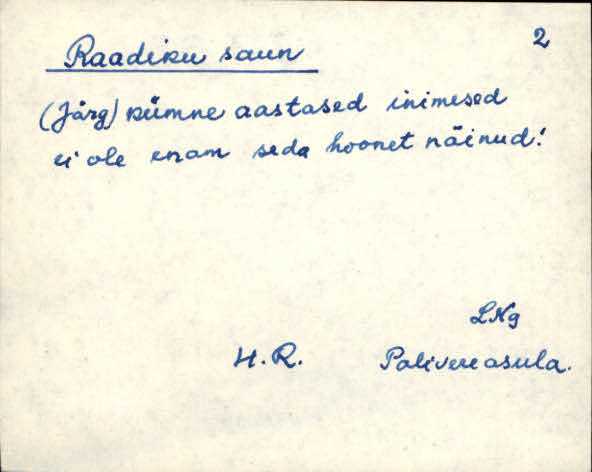 2
Raadiku saun
(Järg) kümne aastased inimesed
ei ole enam seda hoonet näinud!
LNg
H.R. Palivere asula.